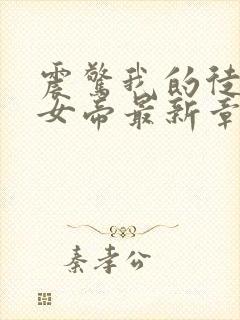 震驚我的徒
女帝最新章
秦孝公